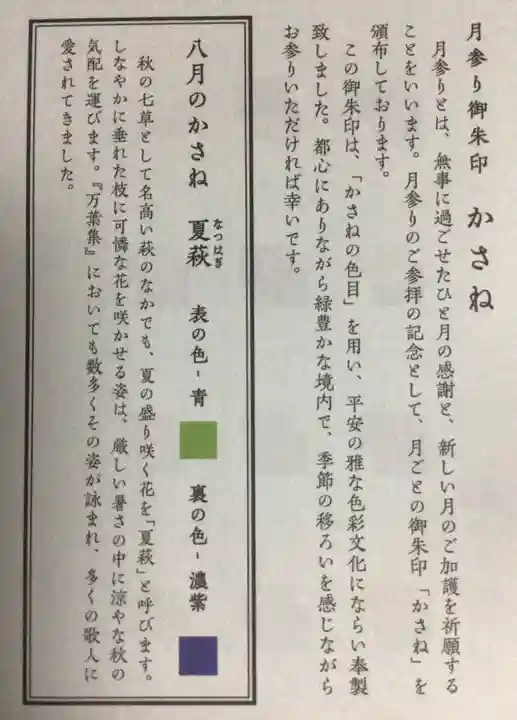 月参り御朱印 かさね
月参りとは、無事に過ごせたひと月の感謝と、新しい月のご加護を祈願する
ことをいいます。月参りのご参拝の記念として、月ごとの御朱印「かさね」を
頒布しております。
この御朱印は、「かさねの色目」を用い、平安の雅な色彩文化にならい奉製
致しました。都心にありながら緑豊かな境内で、季節の移ろいを感じながら
お参りいただければ幸いです。
八月のかさね 夏萩 なつはぎ 表の色-青 裏の色-濃紫
秋の七草として名高い萩のなかでも、夏の盛り咲く花を「夏萩」と呼びます。
しなやかに垂れた枝に可憐な花を咲かせる姿は、厳しい暑さの中に涼やな秋の
気配を運びます。『万葉集』においても数多くその姿が詠まれ、多くの歌人に
愛されてきました。